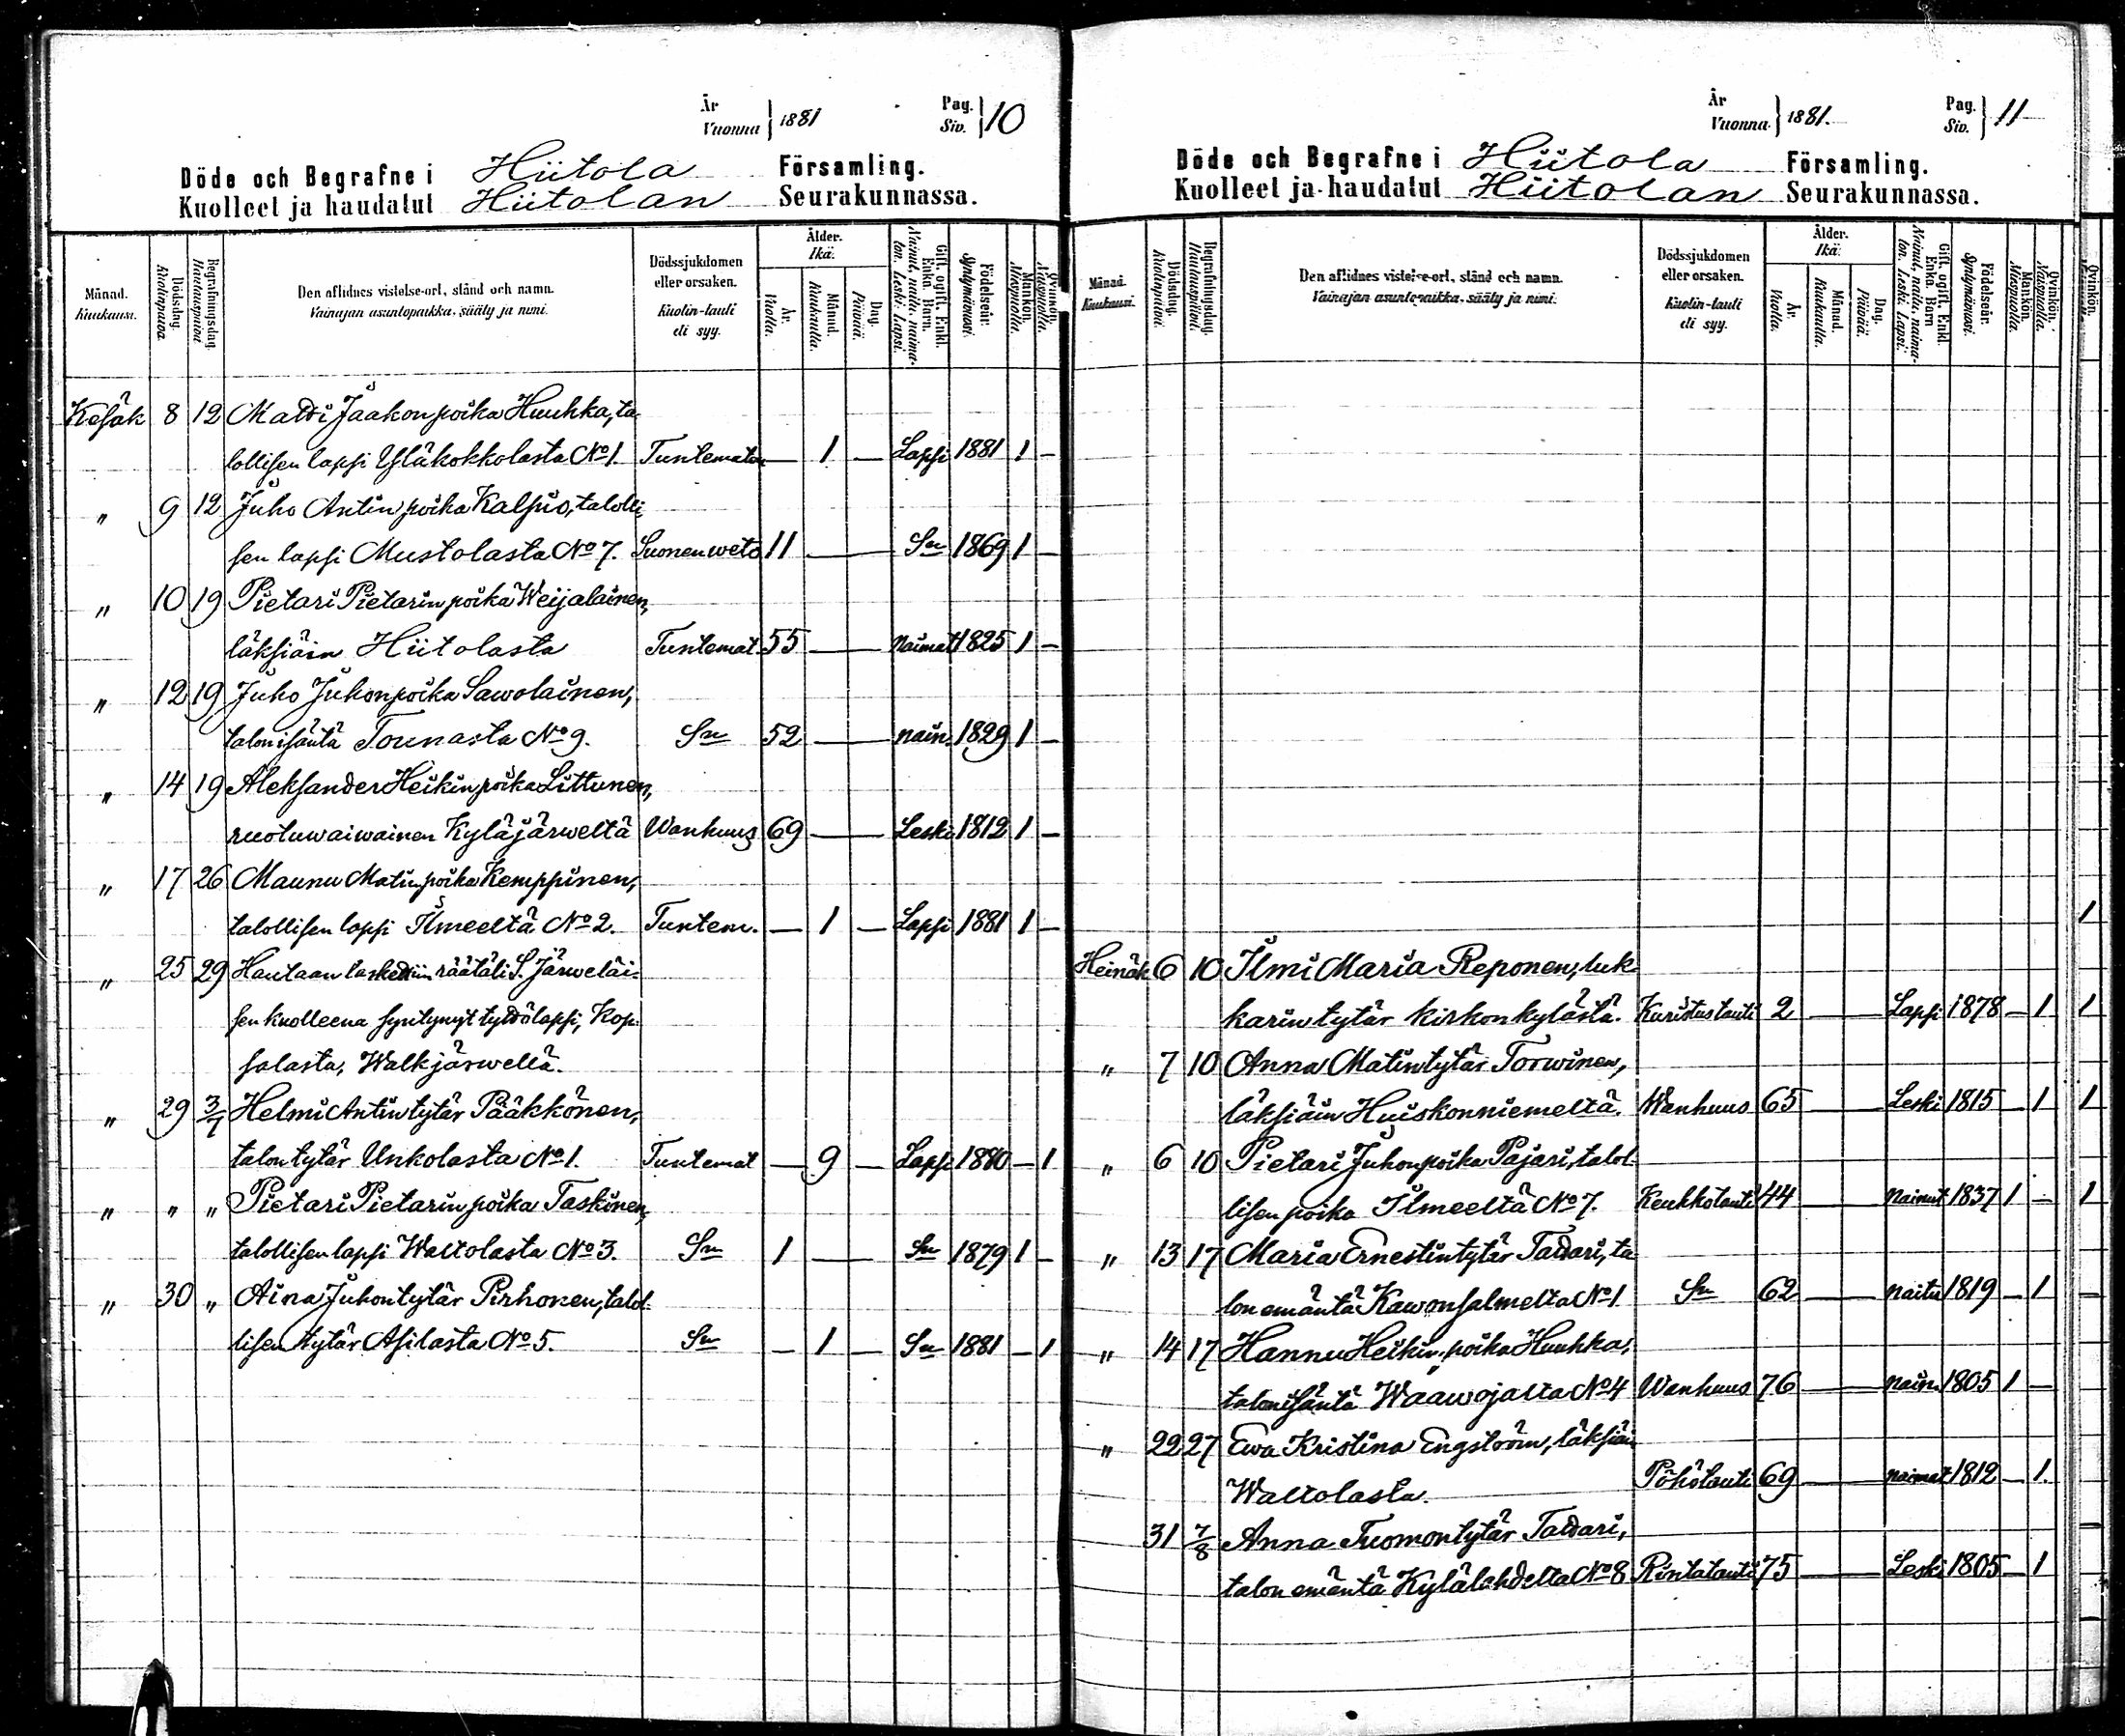 År
Vuonna } 1881
Pag.
Siv. } 10
Döde och Begrafne i Hiitola Församling.
Kuolleet ja haudatut Hiitolan Seurakunnassa.
Månad. Kuukausi.
Dödsdag. Kuolinpäivä
Begrafningsdag. Hautauspäivä
Den aflidnes vistelse-ort, stånd och namn.
Vainajan asuntopaikka, sääty ja nimi.
Dödssjukdomen eller orsaken.
Kuolin-tauti eli syy.
Ålder. Ikä.
År. Vuotta.
Månad. Kuukautta.
Dag. Päivää.
Gift, ogift, Enkl. Enka. Barn.
Nainut, naitu, naimaton. Leski. Lapsi.
Födelseår. Syntymävuosi.
Mankön. Miespuolia.
Qvinkön. Naispuolia.
Kesäk 8 12 Matti Jaakonpoika Huuhka, ta-
lollisen lapsi Yläkokkolasta No 1. Tuntematon — 1 — Lapsi 1881 1 —
" 9 12 Juho Antinpoika Kalpio, talolli-
sen lapsi Mustolasta No 7. Suonenweto 11 — Sn 1869 1 —
" 10 19 Pietari Pietarinpoika Weijalainen,
läksiäin Hiitolasta Tuntemat. 55 — Naimat 1825 1 —
" 12 19 Juho Juhonpoika Sawolainen,
talonisäntä Tounasta No 9. Sn 52 — nain. 1829 1 —
" 14 19 Aleksander Heikinpoika Littunen,
ruotuwaiwainen Kyläjärweltä Wanhuus 69 — Leski 1812 1 —
" 17 26 Maunu Matinpoika Kemppinen,
talollisen lapsi Ilmeeltä No 2. Tuntem. — 1 — Lapsi 1881 1 —
" 25 29 Hautaan laskettiin räätäli S. Järweläi-
sen kuolleena syntynyt tyttölapsi, Kop-
salasta, Walkjärwellä.
" 29 3/7 Helmi Antintytär Pääkkönen,
talon tytär Unkolasta No 1. Tuntemat — 9 — Lapsi 1880 — 1
" " " Pietari Pietarinpoika Taskinen,
talollisen lapsi Waltolasta No 3. Sn 1 — Sn 1879 1 —
" 30 " Aina Juhontytär Pirhonen, talol-
lisen tytär Asilasta No 5. Sn — 1 — Sn 1881 — 1
År
Vuonna. } 1881.
Pag.
Siv. } 11
Döde och Begrafne i Hiitola Församling.
Kuolleet ja haudatut Hiitolan Seurakunnassa.
Månad. Kuukausi.
Dödsdag. Kuolinpäivä.
Begrafningsdag. Hautauspäivä.
Den aflidnes vistelse-ort, stånd och namn.
Vainajan asuntopaikka, sääty ja nimi.
Dödssjukdomen eller orsaken.
Kuolin-tauti eli syy.
Ålder. Ikä.
År. Vuotta.
Månad. Kuukautta.
Dag. Päivää.
Gift, ogift, Enkl. Enka. Barn
Nainut, naitu, naimaton. Leski. Lapsi.
Födelseår. Syntymävuosi.
Mankön. Miespuolia.
Qvinkön. Naispuolia.
Qvinkön.
1
Heinäk 6 10 Ilmi Maria Reponen, luk-
karin tytär kirkonkylästä. Kuristustauti 2 — Lapsi 1878 — 1 1
" 7 10 Anna Matintytär Torwinen,
läksiäin Huiskonniemeltä. Wanhuus 65 — Leski 1815 — 1 1
" 6 10 Pietari Juhonpoika Pajari, talol-
lisen poika Ilmeeltä No 7. Keuhkotauti 44 — Nainut 1837 1 — 1
" 13 17 Maria Ernestintytär Tattari, ta-
lon emäntä Kawonsalmelta No 1 Sn 62 — Naitu 1819 — 1 —
" 14 17 Hannu Heikinpoika Huuhka,
talonisäntä Waawojalta No 4 Wanhuus 76 — Nain. 1805 1 —
" 22 27 Ewa Kristina Engström, läksiäin
Waltolasta. Pöhötauti 69 — naimat 1812 — 1.
31 7/8 Anna Tuomontytär Tattari,
talon emäntä Kylälahdelta No 8 Rintatauti 75 — Leski 1805 — 1